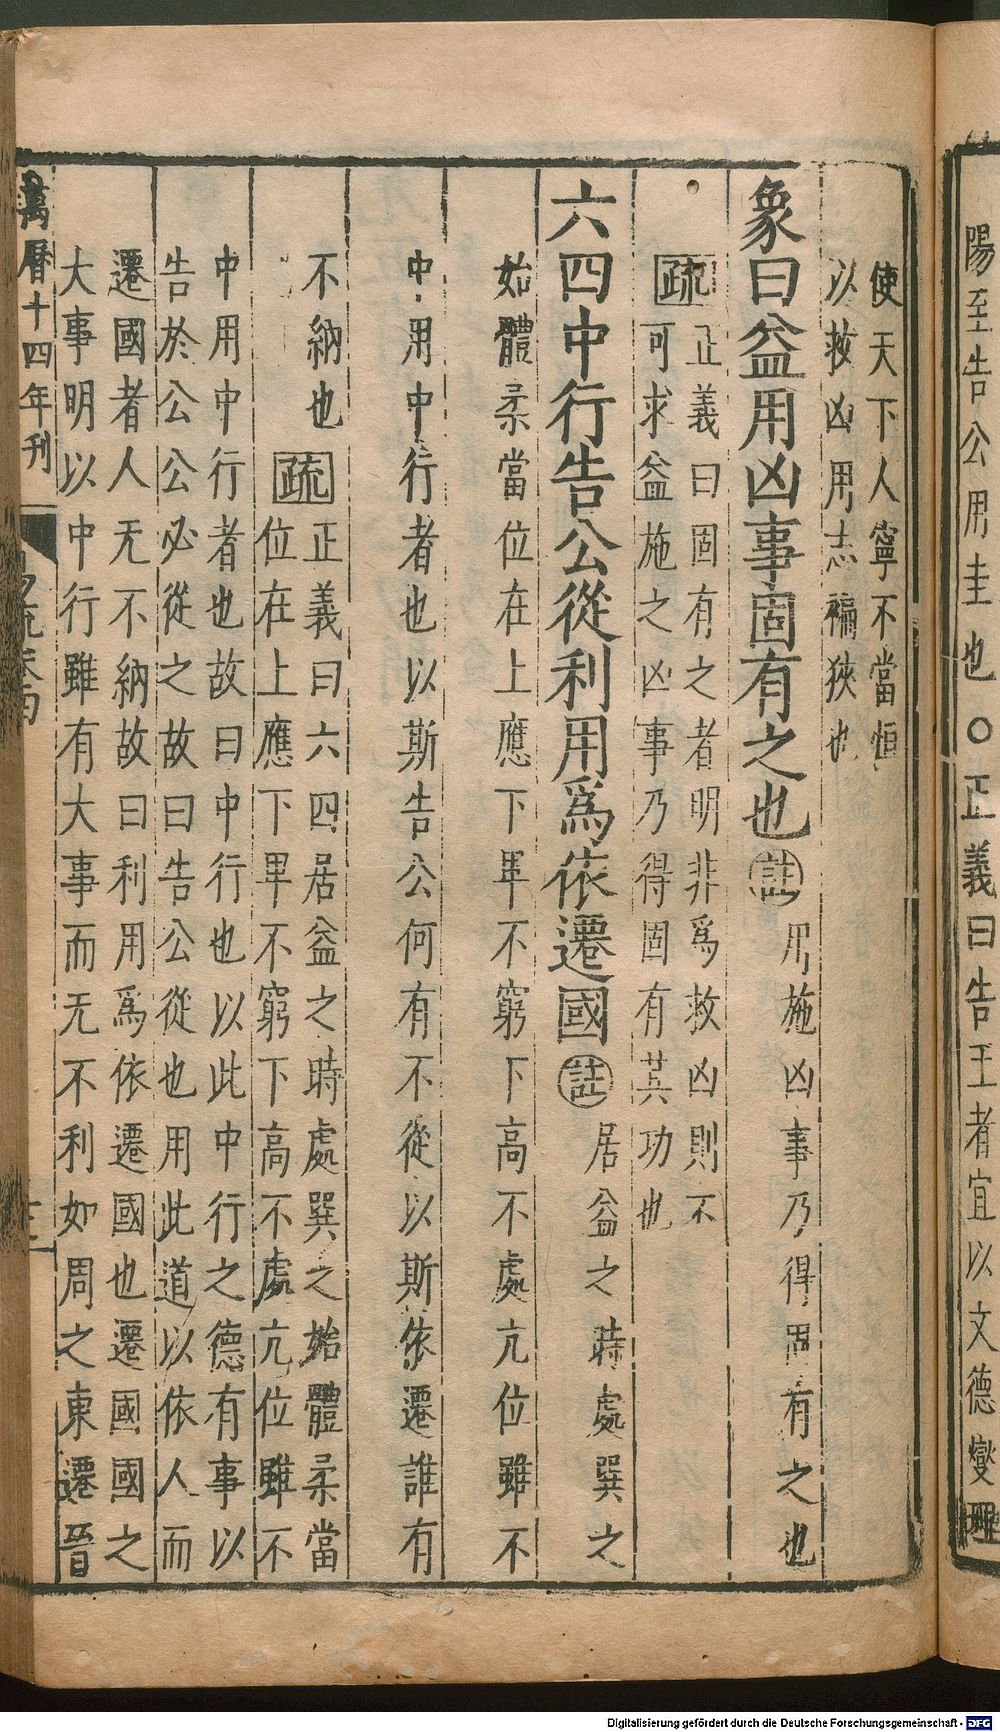 陽至告公用圭也○正義曰告王者宜以文德燮理
使天下人寧不當恒
以救凶用志褊狹也
象曰益用凶事固有之也註用施凶事乃得固有之也
疏正義曰固有之者明非爲救凶則不
可求益施之凶事乃得固有其功也
六四中行告公從利用爲依遷國註居益之時處巽之
始體柔當位在上應下卑不窮下高不處亢位雖不
中用中行者也以斯告公何有不從以斯依遷誰有
不納也疏正義曰六四居益之時處巽之始體柔當
位在上應下卑不窮下高不處亢位雖不
中用中行者也故曰中行也以此中行之德有事以
告於公公必從之故曰告公從也用此道以依人而
遷國者人无不納故曰利用爲依遷國也遷國國之
大事明以中行雖有大事而无不利如周之東遷晉
萬曆十四年刊
易疏卷四
Digitalisierung gefördert durch die Deutsche Forschungsgemeinschaft - DFG